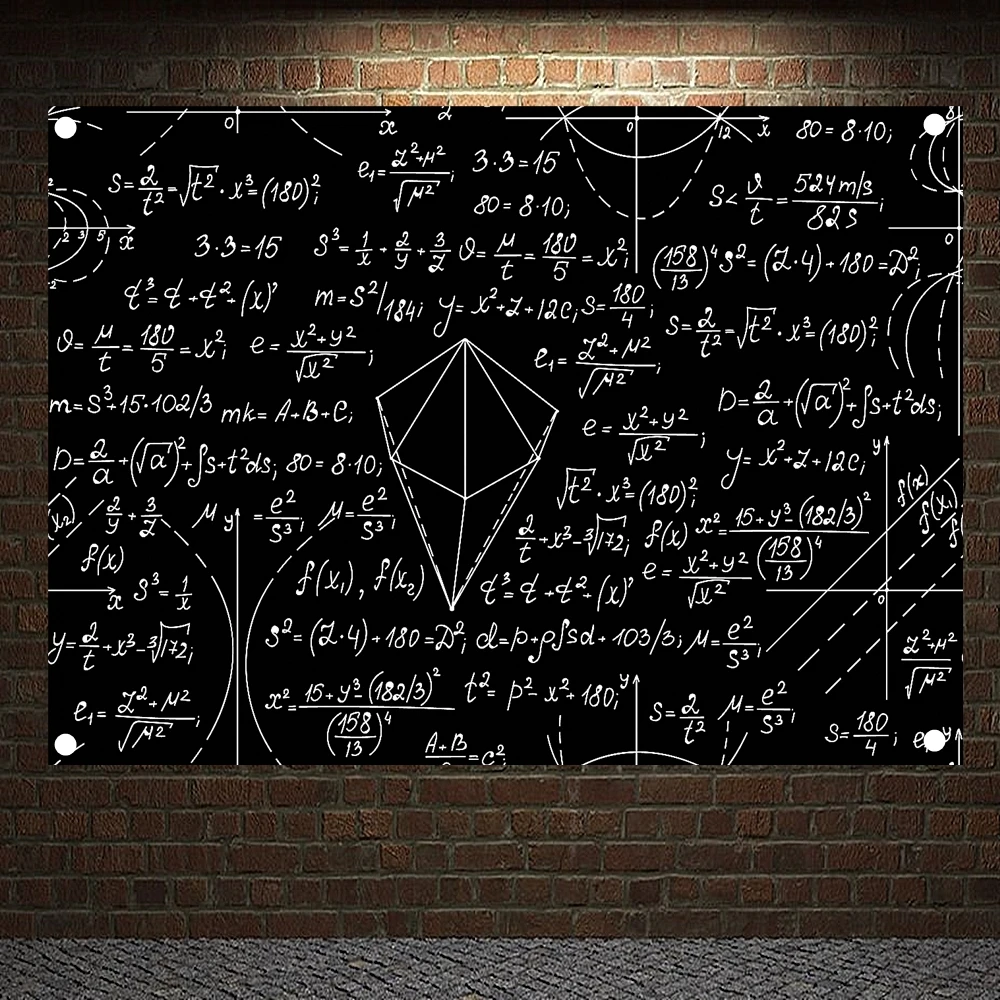 0 x 2 0 12 x 80 = 8·10;
S = 2/t² = √t² · x³ = (180)²;
e₁ = Z²+μ²/√μ²; 3·3=15
80 = 8·10;
S < ϑ/t = 524 m/s/82 s;
2 3 5 x 0
3·3=15 S³ = 1/x + 2/y + 3/Z ϑ = μ/t = 180/5 = x²; (158/13)⁴ S² = (Z·4) + 180 = D²;
d³ = d + d² + (x)' m = S²/184; y = x² + Z + 12c; S = 180/4;
S = 2/t² = √t² · x³ = (180)²;
ϑ = μ/t = 180/5 = x²; e = x²+y²/√x²; e₁ = Z²+μ²/√μ²;
m = S³+15·102/3 mk = A+B+C; D = 2/a + (√a)² + ∫s+t²ds;
e = x²+y²/√x²;
D = 2/a + (√a)² + ∫s+t²ds; 80 = 8·10; y = x² + Z + 12c; y
√t² · x³ = (180)²; f(x)
(x₂) 2/y + 3/Z μ y = e²/S³; μ = e²/S³; f(x₁)
2/t + x³ - ³√172; f(x) x² = 15+y³-(182/3)²/(158/13)⁴
f(x) f(x₁), f(x₂) d³ = d + d² + (x)' e = x²+y²/√x²
x S³ = 1/x 0
y = 2/t + x³ - ³√172; S² = (Z·4) + 180 = D²; d = p+ρ∫sd + 103/3; μ = e²/S³; Z²+μ²/√μ²
e₁ = Z²+μ²/√μ²; x² = 15+y³-(182/3)²/(158/13)⁴ t² = p² - x² + 180; y S = 2/t² μ = e²/S³; S = 180/4; y
A+B = c²;